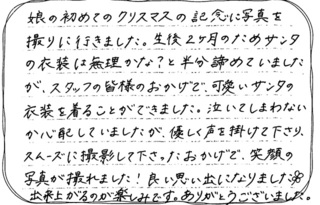 娘の初めてのクリスマスの記念に写真を
撮りに行きました。生後2ヶ月のためサンタ
の衣装は無理かな?と半分諦めていました
が、スタッフの皆様のおかげで、可愛いサンタの
衣装を着ることができました。泣いてしまわない
か心配していましたが、優しく声を掛けて下さり、
スムーズに撮影して下さったおかげで、笑顔の
写真が撮れました!良い思い出になりました
出来上がるのが楽しみです。ありがとうございました。